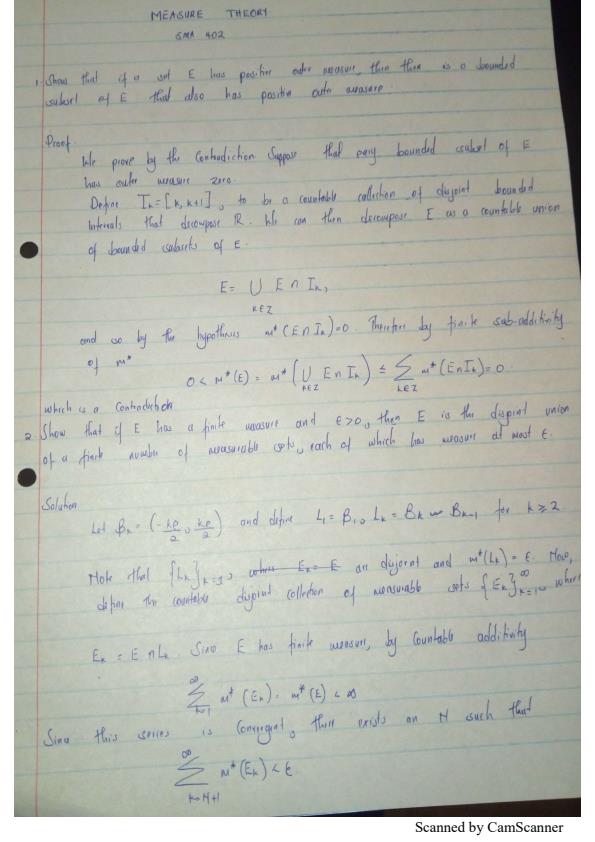 MEASURE THEORY
SMA 402
1. Show that if a set E has positive outer measure, then there is a bounded
subset of E that also has positive outer measure.
Proof.
We prove by the Contradiction Suppose that every bounded subset of E
has outer measure zero.
Define Iₖ = [k, k+1], to be a countable collection of disjoint bounded
Intervals that decompose R. We can then decompose E as a countable union
of bounded subsets of E.
E = ⋃ E ∩ Iₖ,
k∈Z
and so by the hypothesis m*(E∩Iₖ)=0. Therefore by finite sub-additivity
of m*
0 < m*(E) = m*(⋃ E∩Iₖ) ≤ ∑ m*(E∩Iₖ)=0.
k∈Z k∈Z
which is a Contradiction
2 Show that if E has a finite measure and ϵ>0, then E is the disjoint union
of a finite number of measurable sets, each of which has measure at most ϵ.
Solution
Let Bₖ = (-kρ/2, kρ/2) and define L₁ = B₁, Lₖ = Bₖ ∼ Bₖ₋₁ for k ≥ 2
Note that {Lₖ}ₖ₌₁, where Eₖ = E are disjoint and m*(Lₖ) = ϵ. Now,
define the countable disjoint collection of measurable sets {Eₖ}ₖ₌₁^∞, where
Eₖ = E ∩ Lₖ. Since E has finite measure, by Countable additivity
∞
∑ m*(Eₖ) = m*(E) < ∞
k=1
Since this series is Convergent, there exists an N such that
∞
∑ m*(Eₖ) < ϵ
k=N+1
Scanned by CamScanner